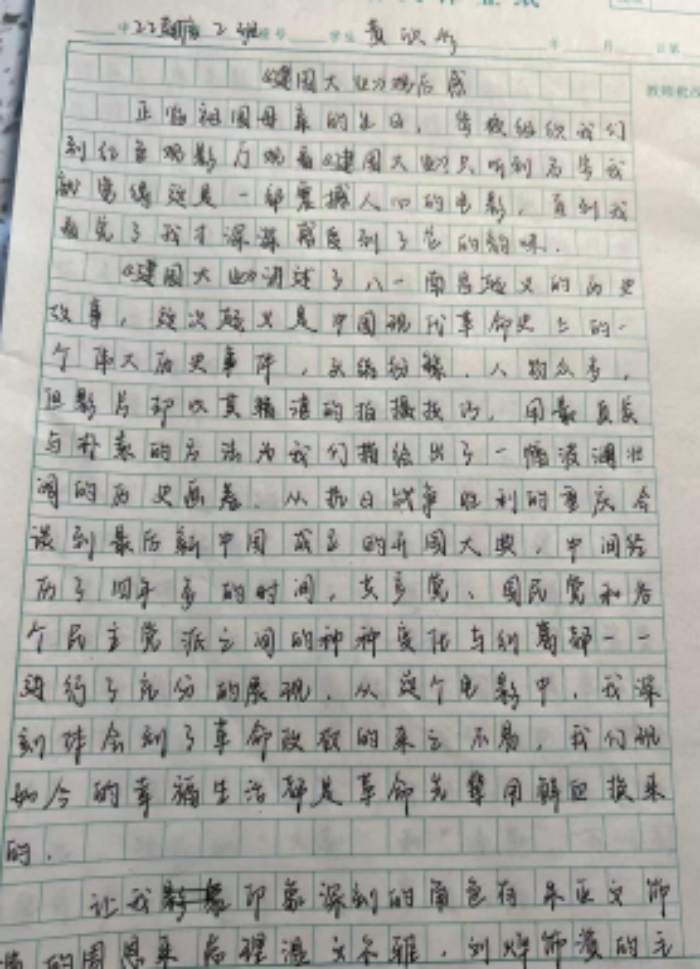 22 2班 座号 学生 黄
年 月 日第
教师批改
《建国大业》观后感
正临祖国母亲的生日，学校组织我们
到红色观影厅观看《建国大业》只听到名字我
就觉得这是一部震撼人心的电影，直到我
看完了我才深深感受到了它的韵味．
《建国大业》讲述了八一南昌起义的历史
故事，这次起义是中国现代革命史上的一
个伟大历史事件，头绪纷繁，人物众多，
但影片却以其精湛的拍摄技巧，用最真实
与朴素的方法为我们描绘出了一幅波澜壮
阔的历史画卷．从抗日战争胜利的重庆会
谈到最后新中国成立的开国大典，中间经
历了四年多的时间，共产党、国民党和各
个民主党派之间的种种变化与纠葛都一一
进行了充分的展现．从这个电影中，我深
刻体会到了革命政权的来之不易，我们现
如今的幸福生活都是革命先辈用鲜血换来
的．
让我 印象深刻的角色有 文饰
演的周恩来 温文尔雅，刘烨饰演的